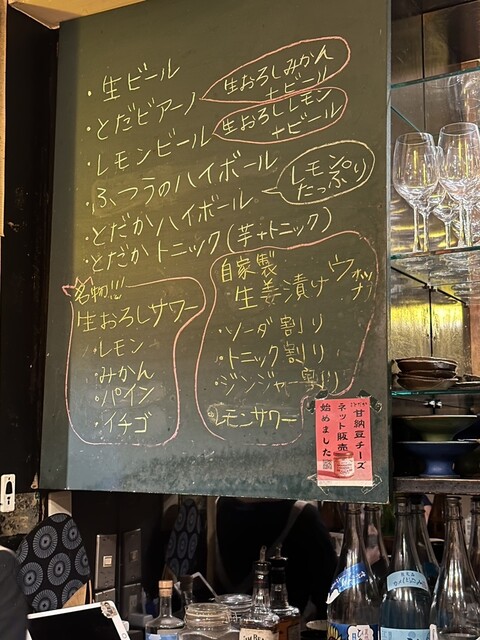 ・生ビール
・とだビアーノ
生おろしみかん
+ビール
・レモンビール
生おろしレモン
+ビール
・ふつうのハイボール
・とだかハイボール
レモン
たっぷり
・とだかトニック(芋+トニック)
名物!!!
生おろしサワー
・レモン
・みかん
・パイン
・イチゴ
自家製
生姜漬けウォッカ
・ソーダ割り
・トニック割り
・ジンジャー割り
・レモンサワー
甘納豆チーズ
ネット販売
始めました